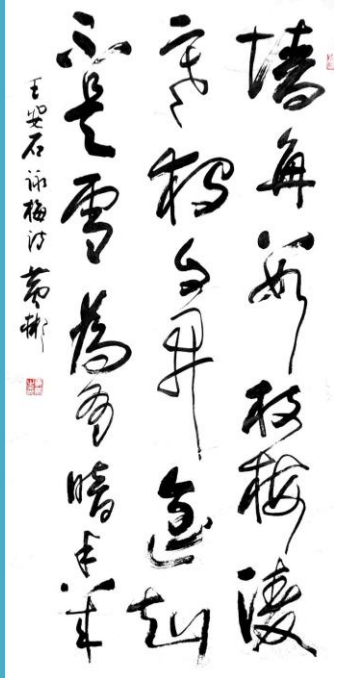 墙角数枝梅凌
寒独自开遥知
不是雪為有暗香来
王安石咏梅诗 黄彬